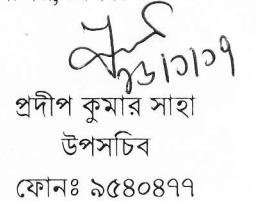 প্রদীপ কুমার সাহা
উপসচিব
ফোনঃ ৯৫৪০৪৭৭